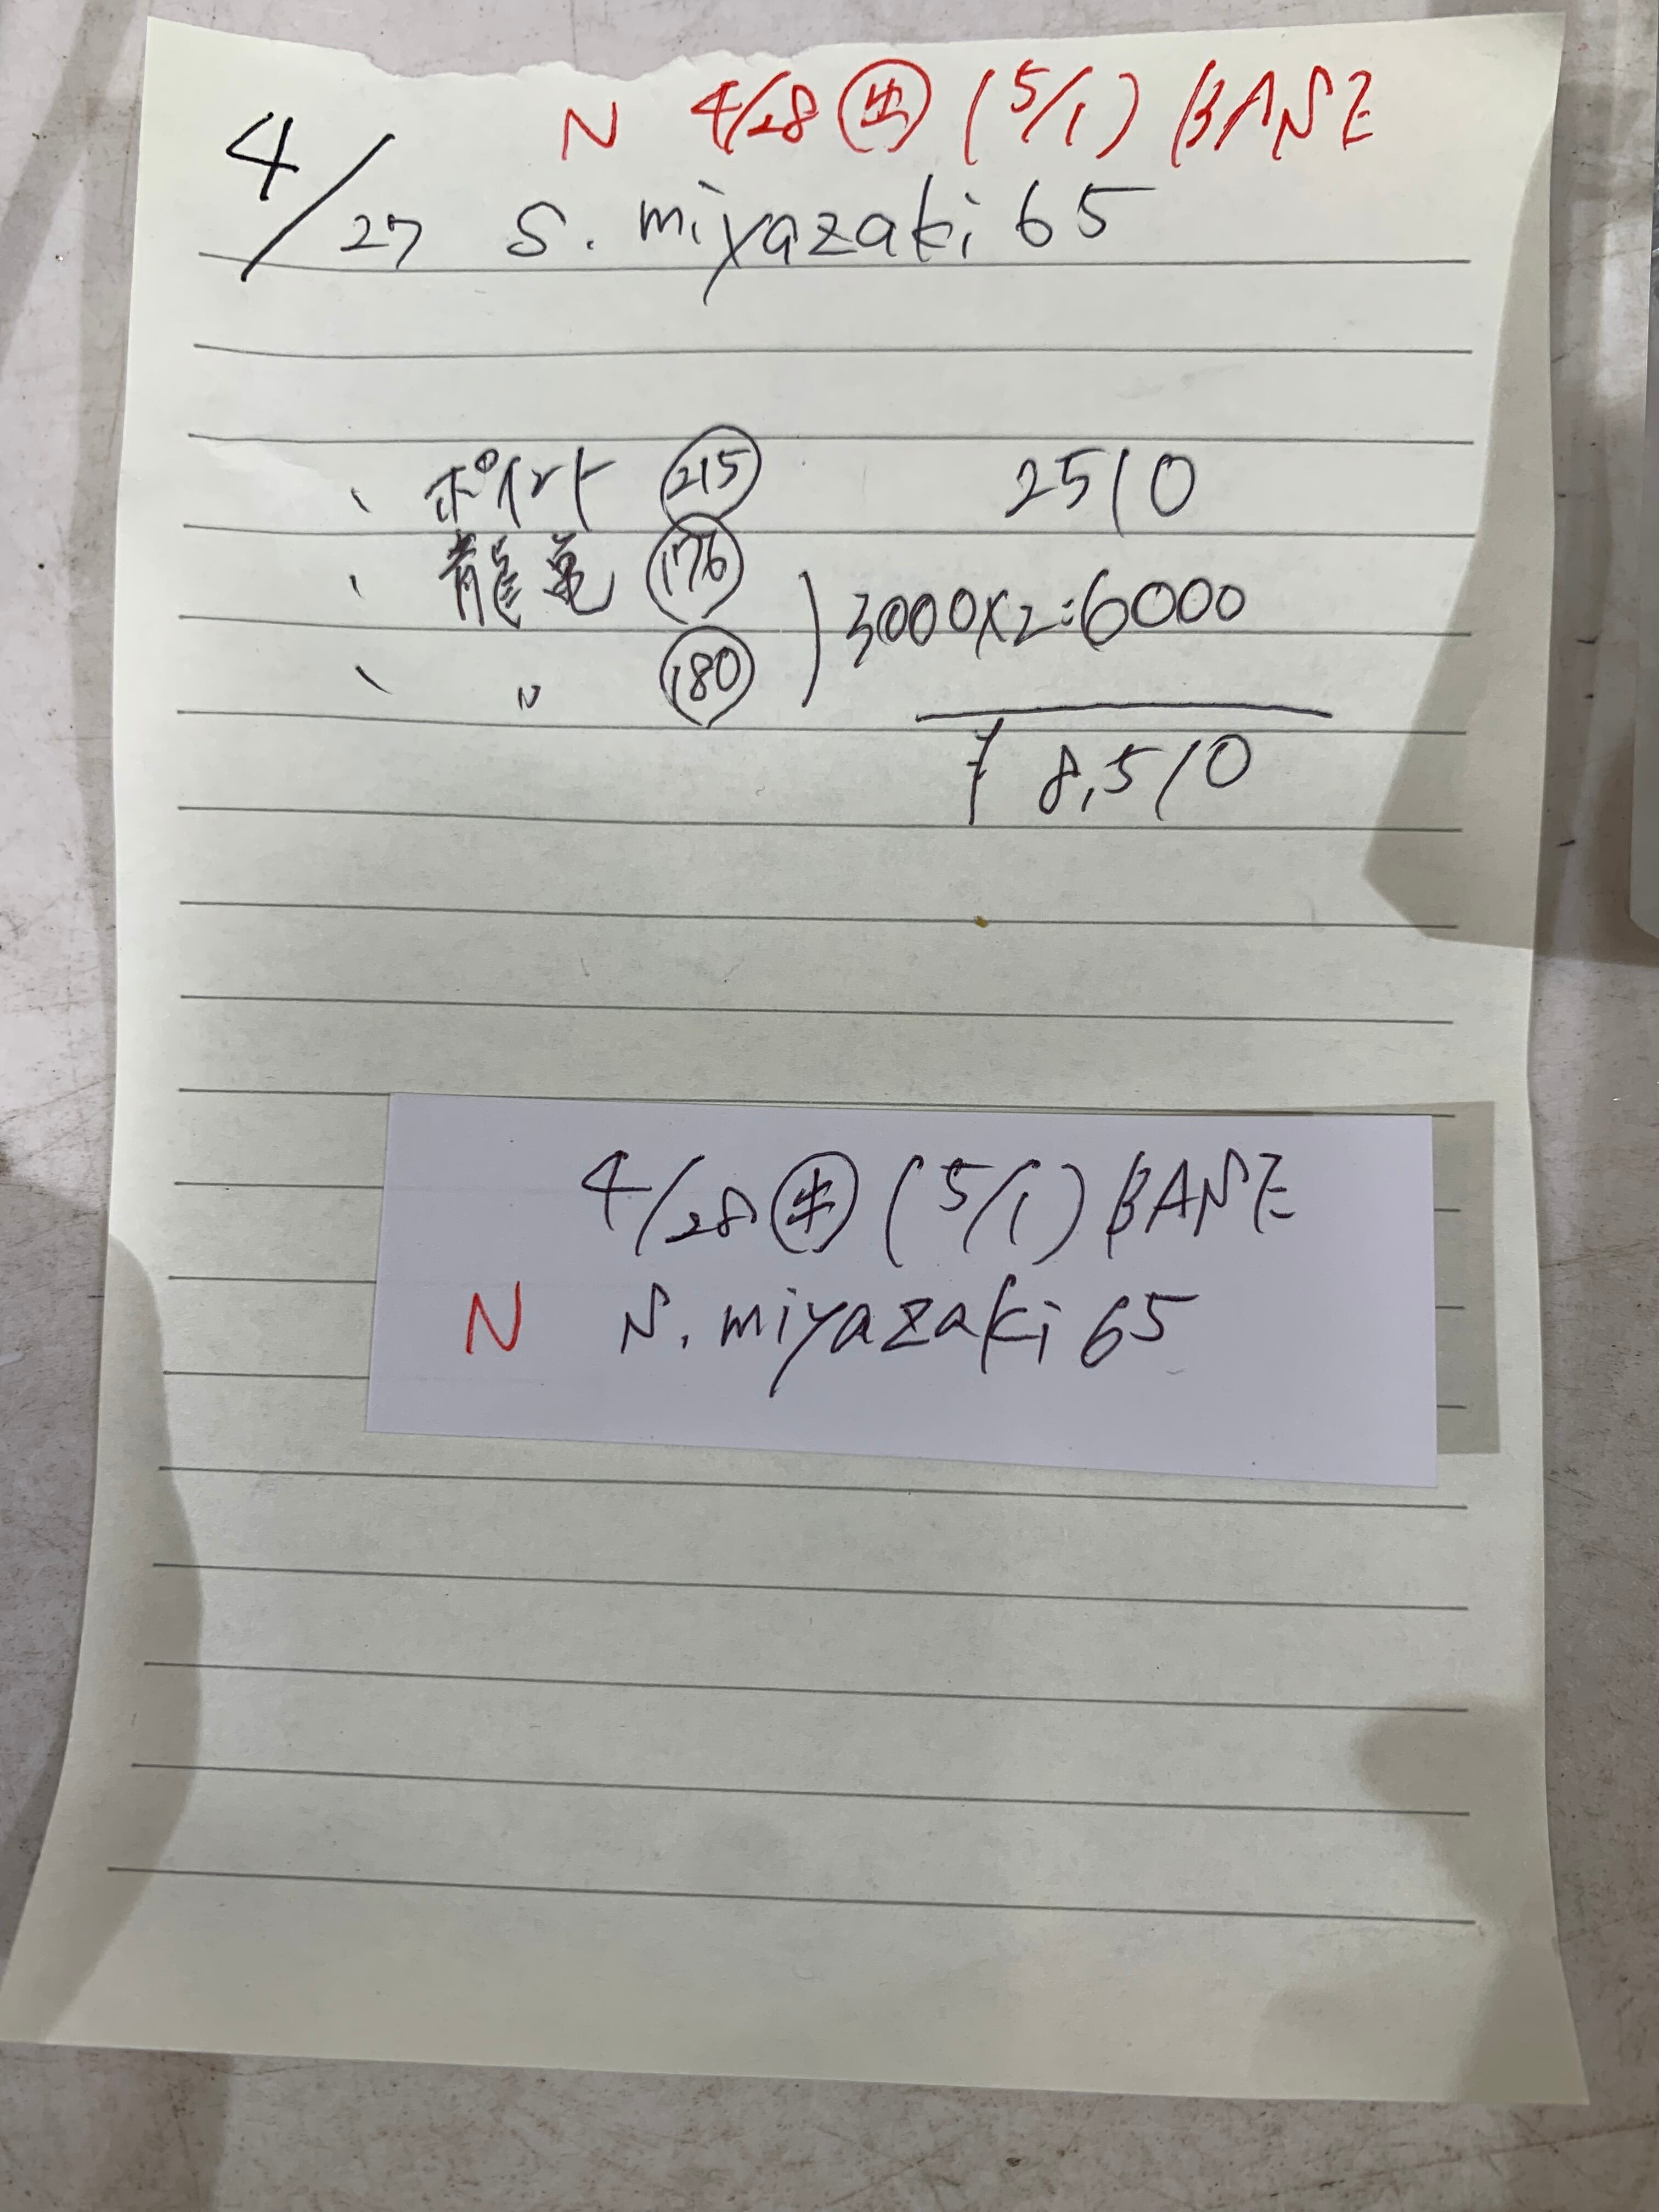 N 4/28 出 (5/1) BASE
4/27 S. miyazaki 65
、 ポイント 215 2510
、 青龍亀 176
) 3000×2=6000
、 〃 180
¥ 8,510
4/28 出 (5/1) BASE
N S. miyazaki 65